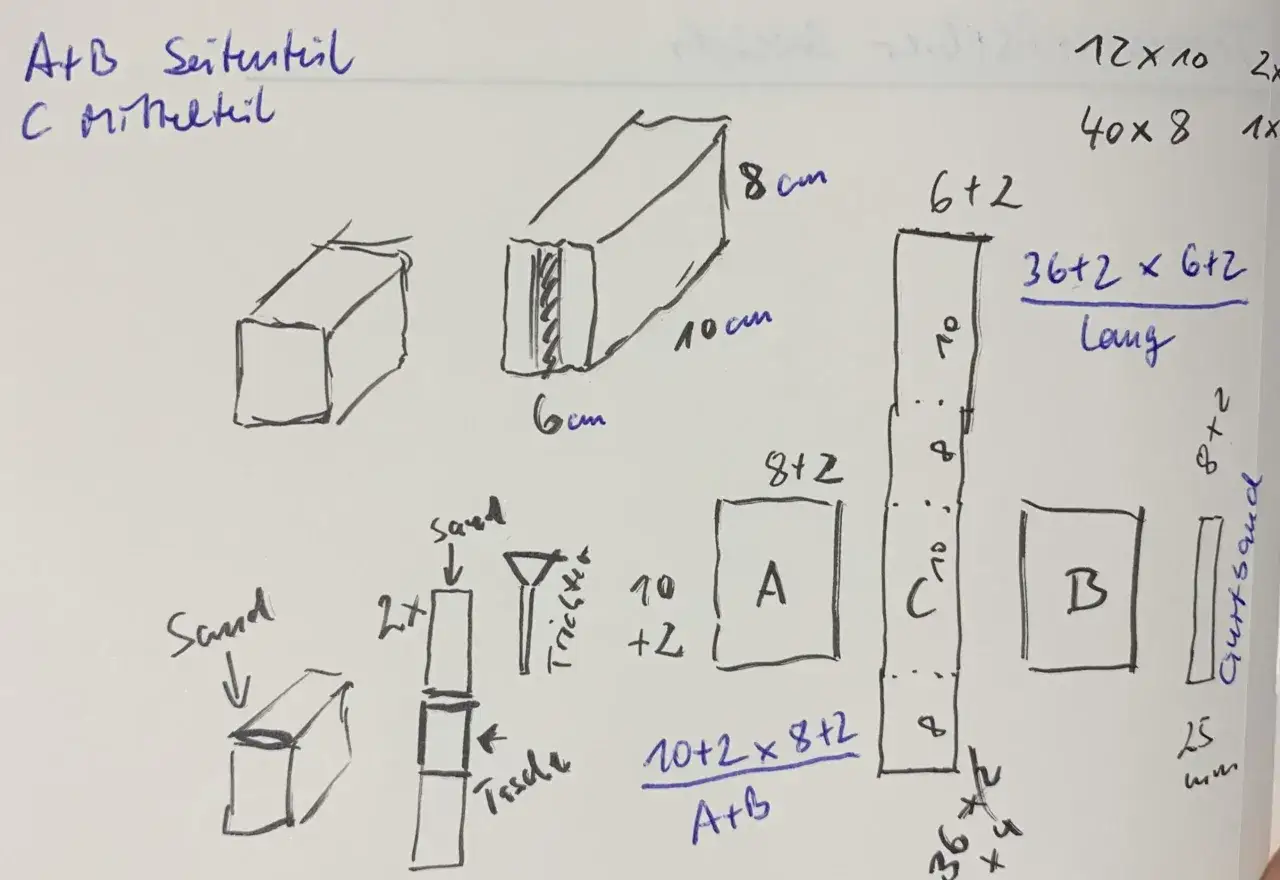 A+B Seitenteil
C Mittelteil
12 x 10 2x
40 x 8 1x
8 cm
10 cm
6 cm
6+2
36+2 x 6+2
lang
10
8
10
8
C
8+2
A
10
+2
B
8+2
Gurtband
25
mm
Sand
Sand
2x
Trichter
10+2 x 8+2
A+B